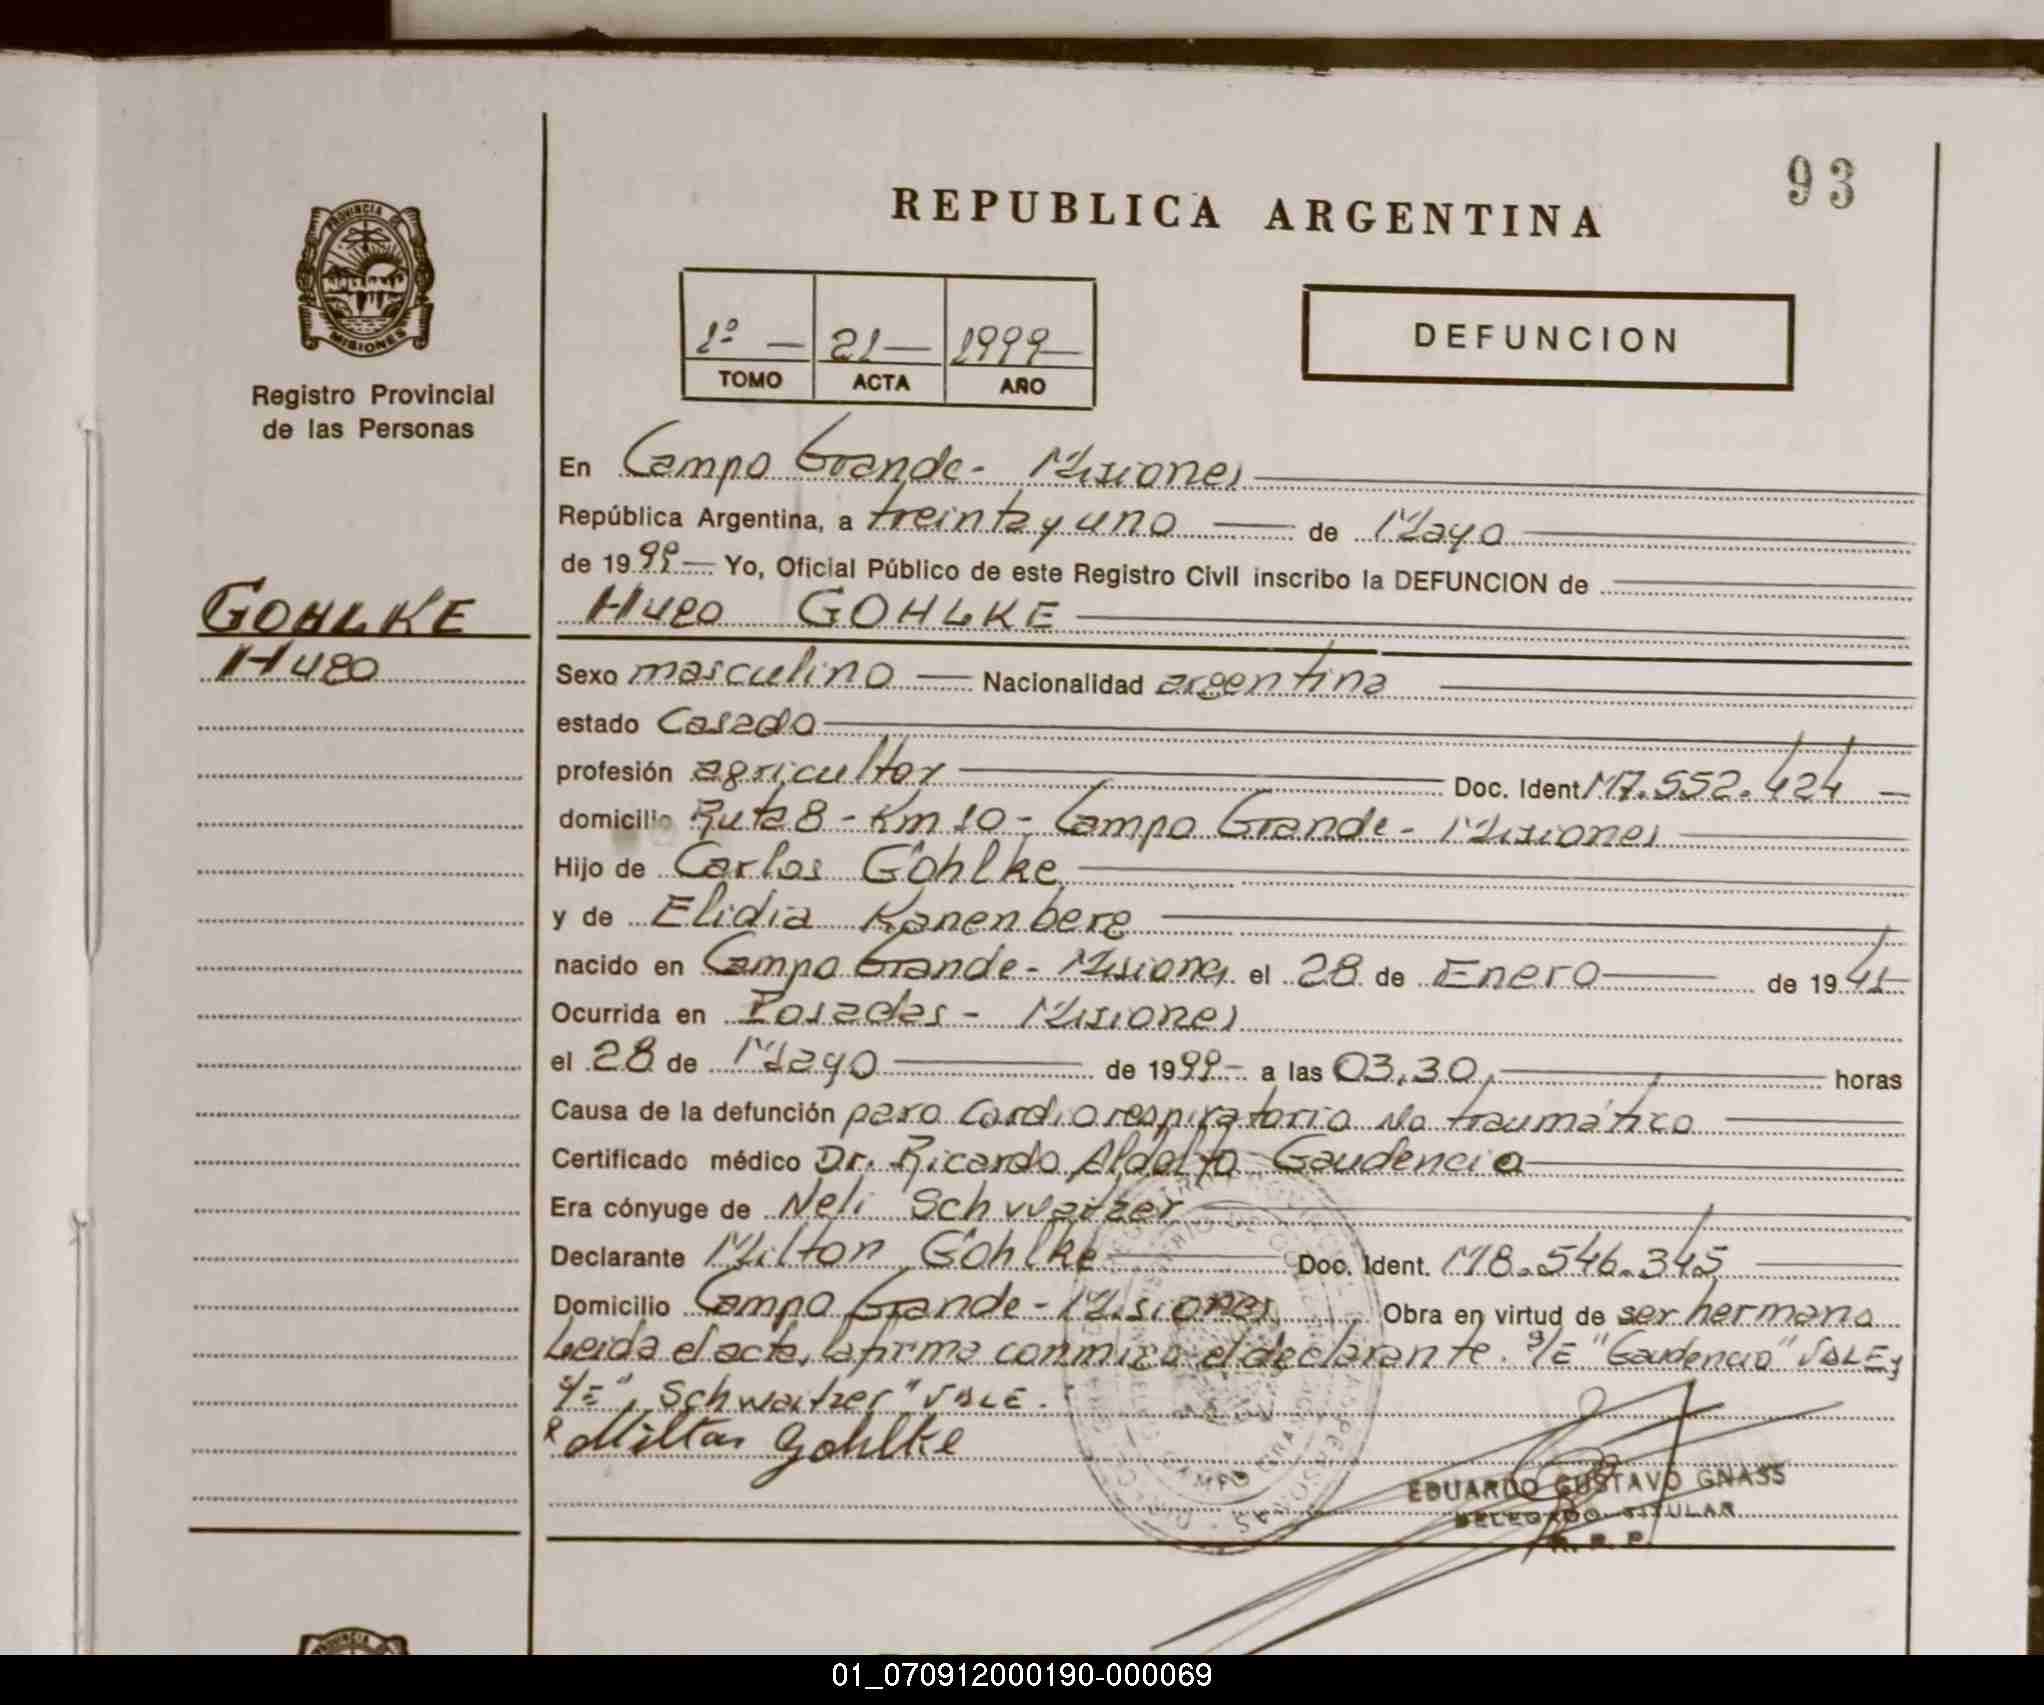 93
REPUBLICA ARGENTINA
PROVINCIA DE
MISIONES
Registro Provincial
de las Personas
1º - 21 - 1999-
TOMO ACTA AÑO
DEFUNCION
En Campo Grande - Misiones
República Argentina, a treinta y uno de Mayo
de 1999- Yo, Oficial Público de este Registro Civil inscribo la DEFUNCION de
GOHLKE
Hugo
Hugo GOHLKE
Sexo masculino Nacionalidad argentina
estado Casado
profesión agricultor Doc. Ident M7.552.424 -
domicilio Ruta 8 - Km 10 - Campo Grande - Misiones
Hijo de Carlos Göhlke
y de Elidia Kanenberg
nacido en Campo Grande - Misiones el 28 de Enero de 1941
Ocurrida en Posadas - Misiones
el 28 de Mayo de 1999- a las 03,30 horas
Causa de la defunción paro Cardiorespiratorio No traumático
Certificado médico Dr. Ricardo Aldolfo Gaudencio
Era cónyuge de Neli Schwaitzer
Declarante Milton Göhlke Doc. Ident. M8.546.345
Domicilio Campo Grande - Misiones Obra en virtud de ser hermano
Leida el acta, la firma conmigo el declarante. S/E "Gaudencio" VALE y
S/E "Schwaitzer" VALE.
Milton Gohlke
EDUARDO GUSTAVO GNASS
DELEGADO TITULAR
R. P. P.
01_070912000190-000069